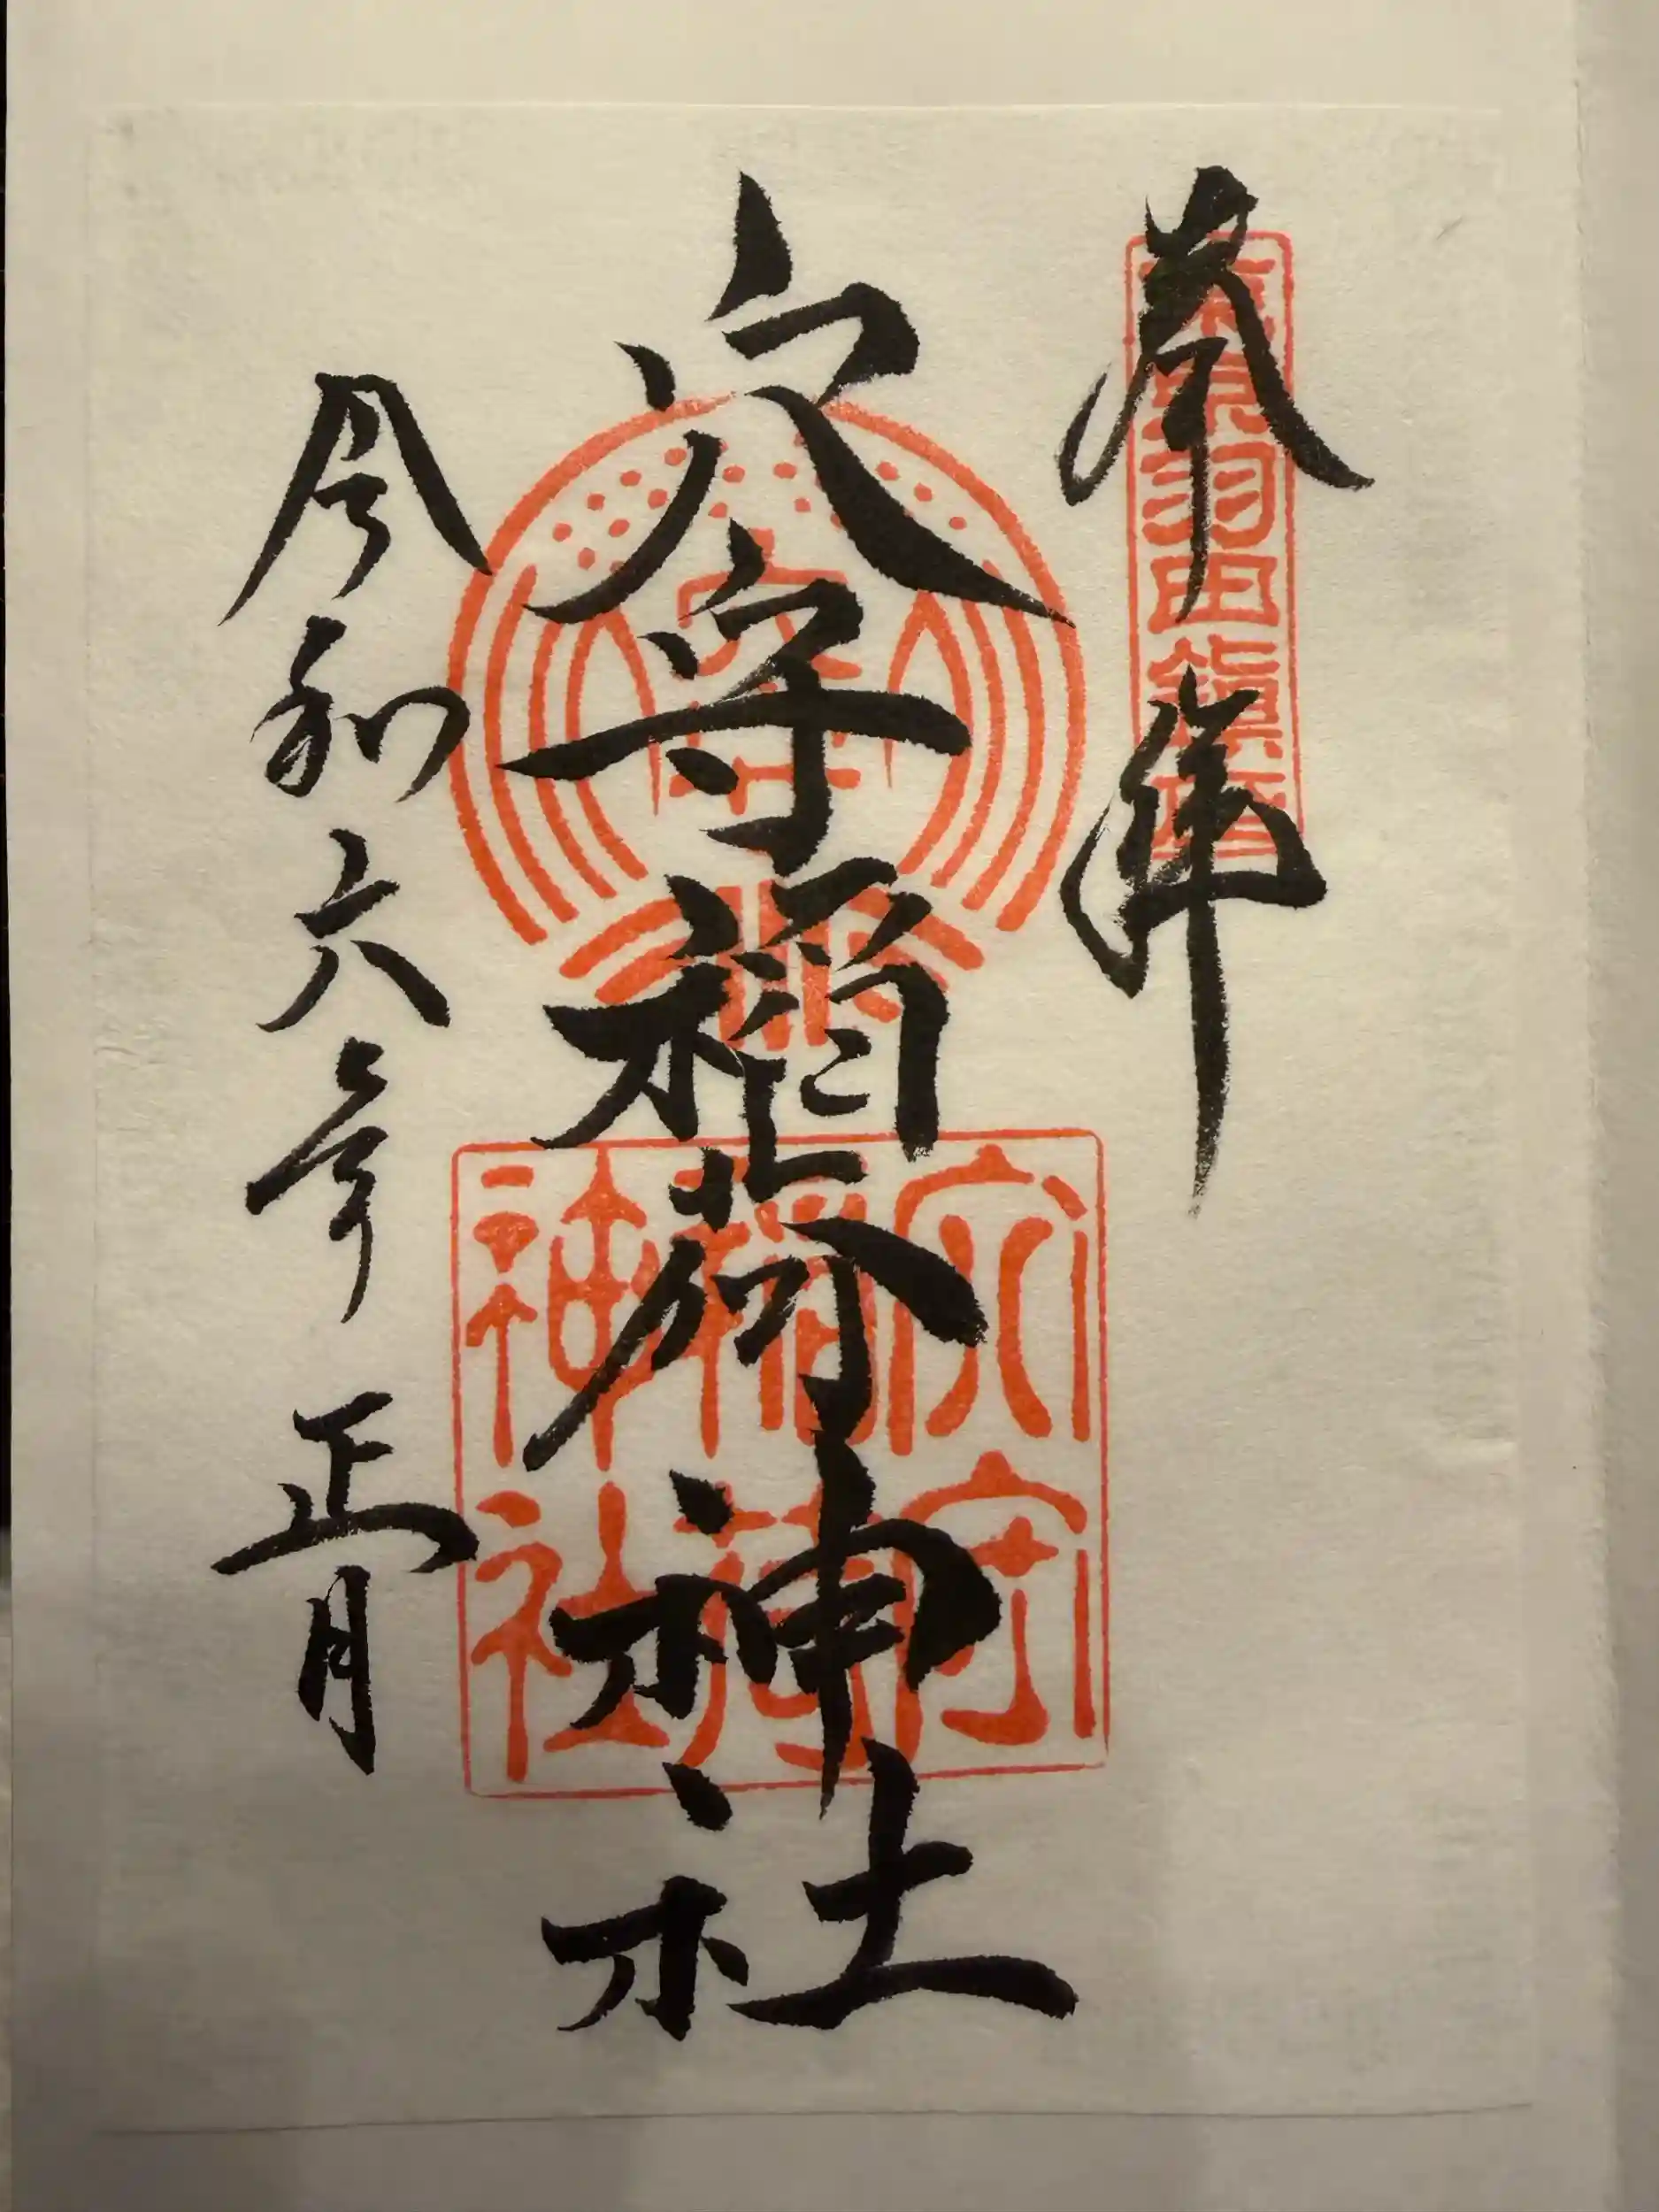 奉拝
東京羽田鎮座
穴守稲荷神社
穴守
穴守稲荷神社
令和六年 正月